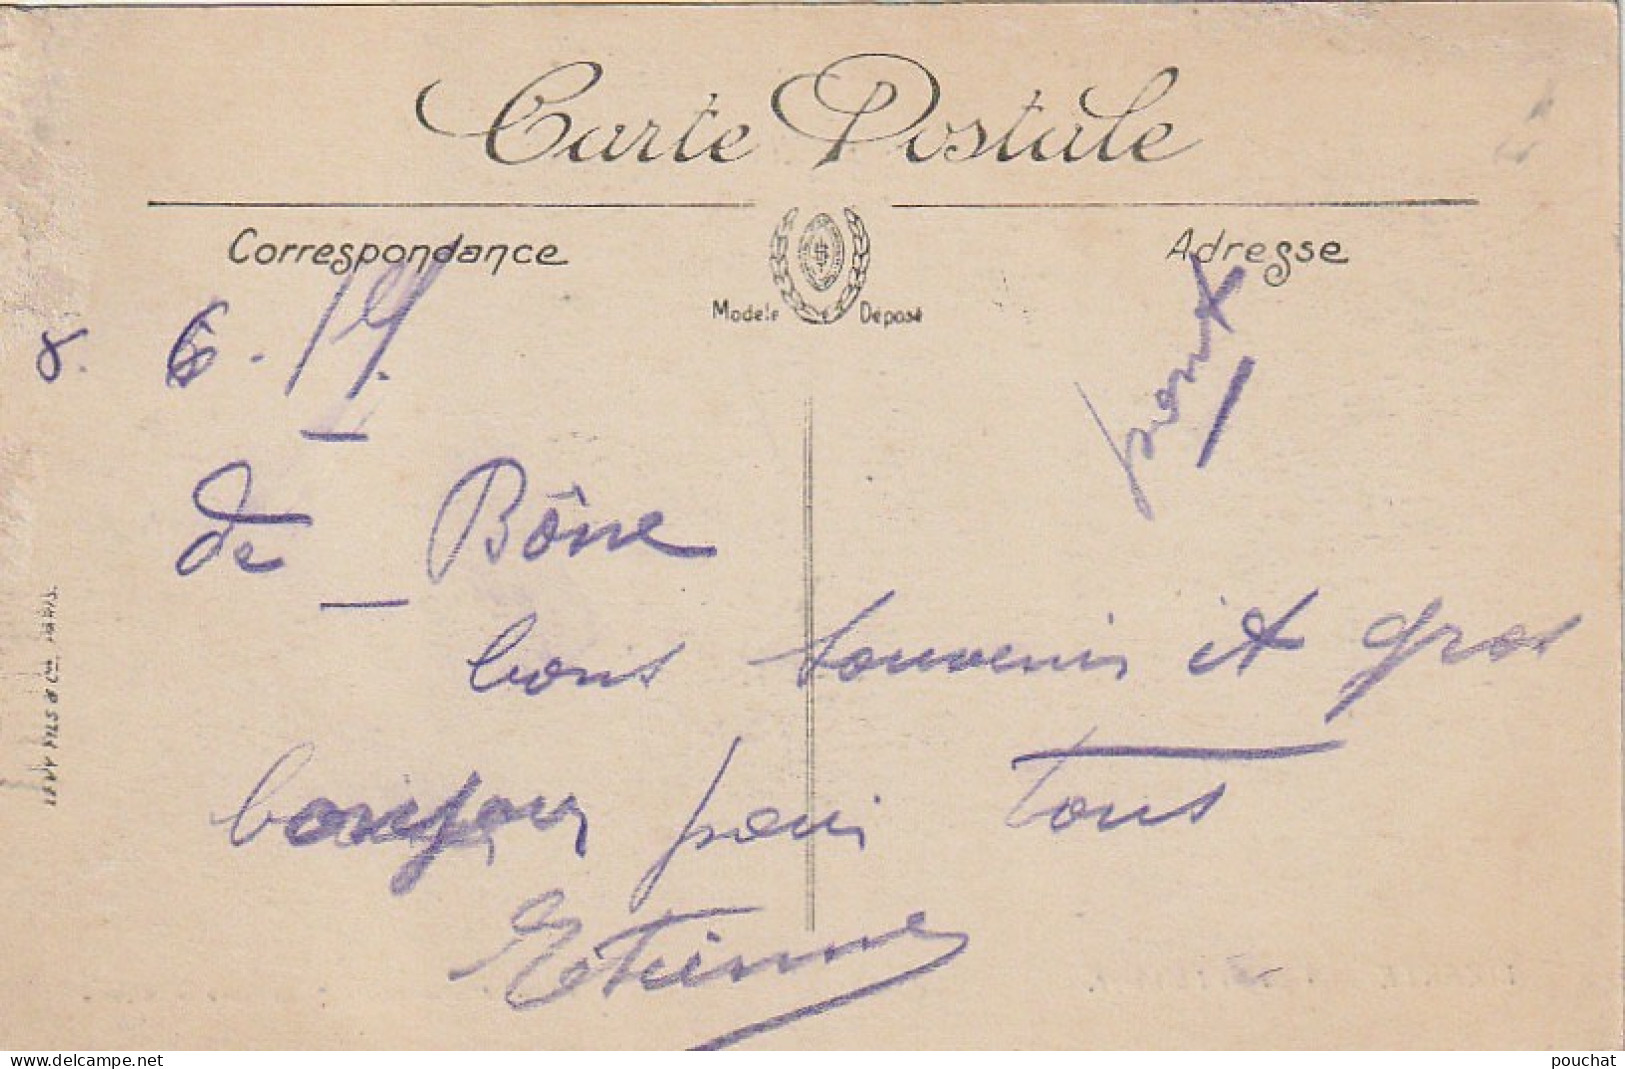 Carte Postale
Correspondance
Adresse
Modèle Déposé
8. 6. 19.
de Bône
bons souvenir et gros
bonjour pour tous
Etienne
LEVY FILS & Cie, PARIS.
www.delcampe.net
pouchat